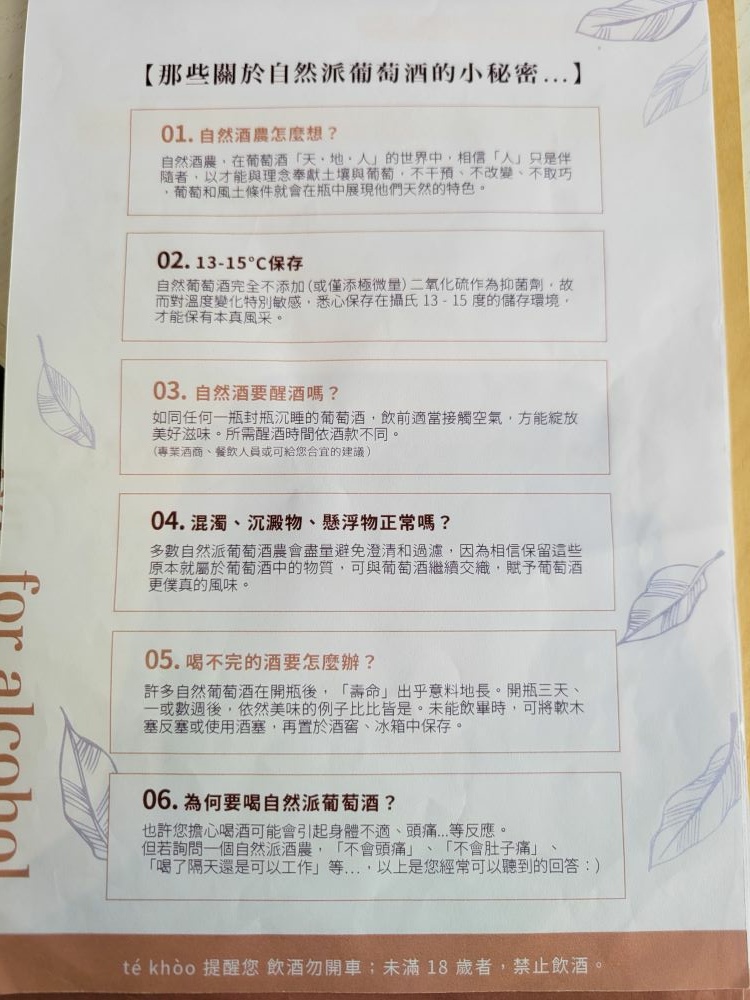 【那些關於自然派葡萄酒的小秘密...】
01. 自然酒農怎麼想？
自然酒農，在葡萄酒「天，地，人」的世界中，相信「人」只是伴
隨者，以才能與理念奉獻土壤與葡萄，不干預、不改變、不取巧
，葡萄和風土條件就會在瓶中展現他們天然的特色。
02. 13-15°C保存
自然葡萄酒完全不添加(或僅添極微量)二氧化硫作為抑菌劑，故
而對溫度變化特別敏感，悉心保存在攝氏 13 - 15 度的儲存環境，
才能保有本真風采。
03. 自然酒要醒酒嗎？
如同任何一瓶封瓶沉睡的葡萄酒，飲前適當接觸空氣，方能綻放
美好滋味。所需醒酒時間依酒款不同。
(專業酒商、餐飲人員或可給您合宜的建議)
04. 混濁、沉澱物、懸浮物正常嗎？
多數自然派葡萄酒農會盡量避免澄清和過濾，因為相信保留這些
原本就屬於葡萄酒中的物質，可與葡萄酒繼續交織，賦予葡萄酒
更僕真的風味。
05. 喝不完的酒要怎麼辦？
許多自然葡萄酒在開瓶後，「壽命」出乎意料地長。開瓶三天、
一或數週後，依然美味的例子比比皆是。未能飲畢時，可將軟木
塞反塞或使用酒塞，再置於酒窖、冰箱中保存。
06. 為何要喝自然派葡萄酒？
也許您擔心喝酒可能會引起身體不適、頭痛...等反應。
但若詢問一個自然派酒農，「不會頭痛」、「不會肚子痛」、
「喝了隔天還是可以工作」等...，以上是您經常可以聽到的回答：)
té khòo 提醒您 飲酒勿開車；未滿 18 歲者，禁止飲酒。
for alcohol